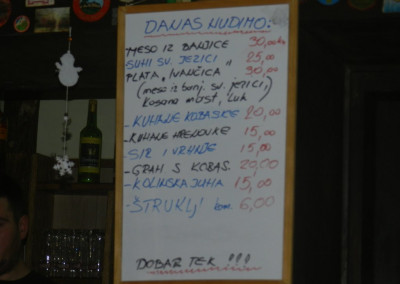 DANAS NUDIMO:
MESO IZ BANJICE 30,00 kn
SUHI SV. JEZICI " 25,00
PLATA „IVANČICA" 30,00
(meso iz banj. sv. jezici,
kosana mast, luk)
-KUHANE KOBASICE 20,00
-KUHANE KRVAVICE 15,00
-SIR I VRHNJE 15,00
-GRAH S KOBAS. 20,00
-KOLINSKA JUHA 15,00
-ŠTRUKLJI kom. 6,00
DOBAR TEK !!!